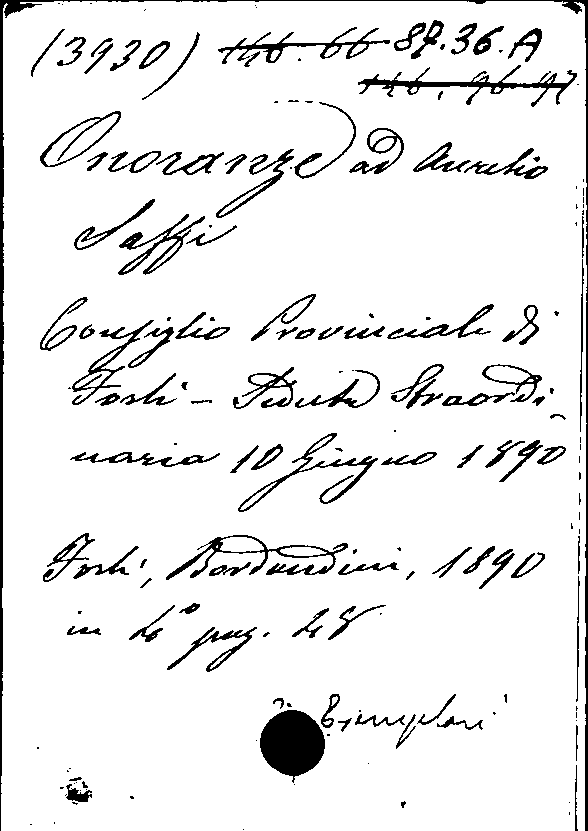 (3930) 146. 66 87.36.A
146. 96-97
Onoranze ad Aurelio
Saffi
Consiglio Provinciale di
Forlì - Seduta Straordi-
naria 10 Giugno 1890
Forlì, Bordandini, 1890
in 4° pag. 28
Esemplari